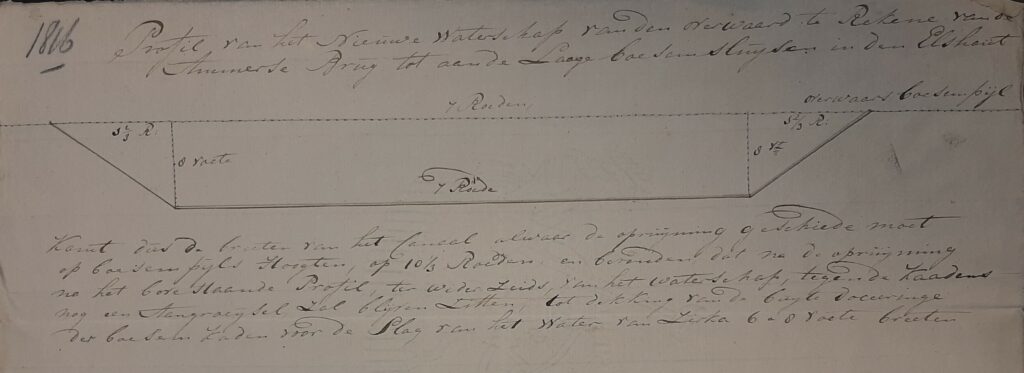 1816
Profil, van het Nieuwe Waterschap van den overwaard te Rekene, van de
Ammerse Brug tot aan de Laage boesemsluysen in den Elshout
7 Roeden,
overwaars boesempijl
8 voete
7 Roede
komt dus de breeten van het Canaal alwaar de opruyming geschiede moet
op boesempijls Hoogten, op 10⅓ Roeden. en bevonden dat na de opruyming
na het bove staande Profil, ter weder Zeids, van het waterschap, tegen de kaadens
nog een Zal blijven Zitten, tot dekking van de buyte doceringe
der boesem kaden voor de Slag van het Water van Zirka 6 a 8 voete breeten